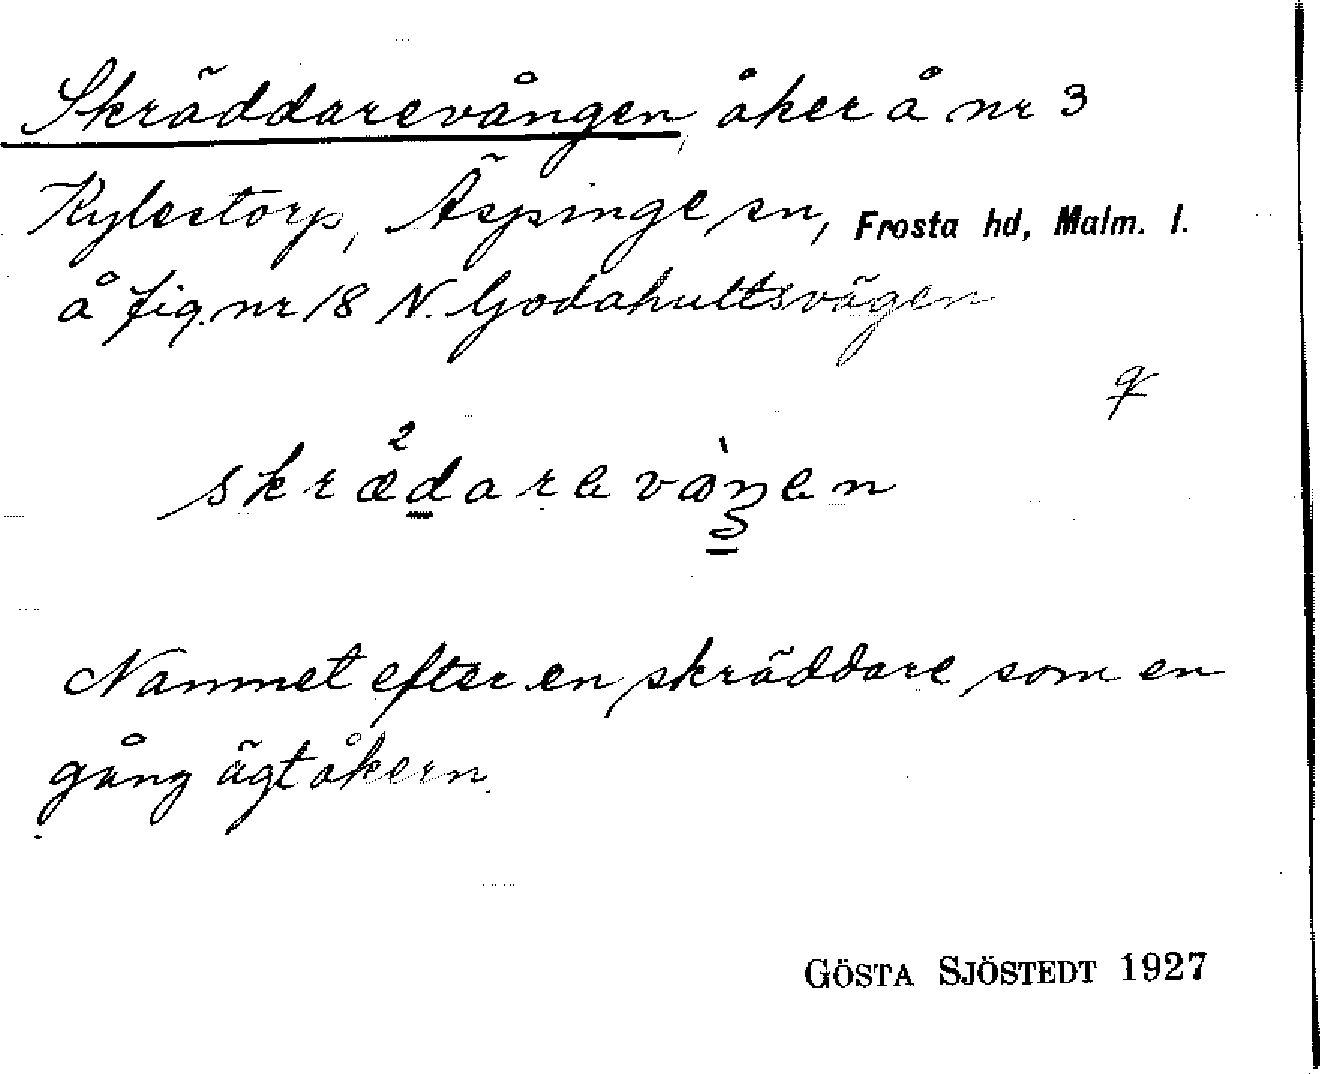 Skräddarevången, åker å nr 3
Kylestorp, Äspinge sn, Frosta hd, Malm. l.
å fig. nr 18 N. Godahultsvägen
skræ²darevàŋen
Namnet efter en skräddare som en
gång ägt åkern.
GÖSTA SJÖSTEDT 1927